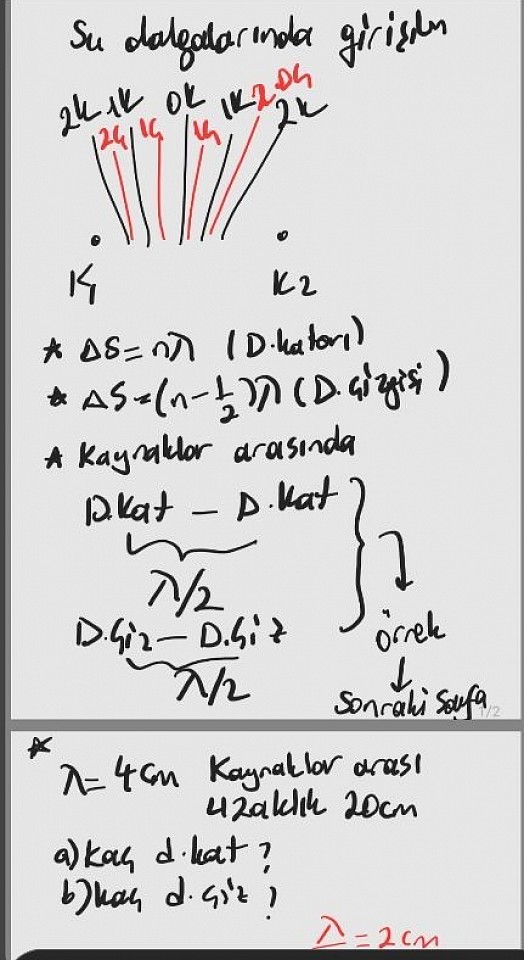 Su dalgalarında girişim
2K 1K 0K 1K 2K
2Ç 1Ç 1Ç 2 DÇ
K1 K2
* ΔS = nλ (D.katarı)
* ΔS = (n - 1/2)λ (D.çizgisi)
* Kaynaklar arasında
D.kat - D.kat
λ/2
D.çiz - D.çiz
λ/2
örnek
Sonraki Sayfa
1/2
* λ = 4 cm Kaynaklar arası
uzaklık 20cm
a) kaç d.kat?
b) kaç d.çiz?
λ = 2 cm